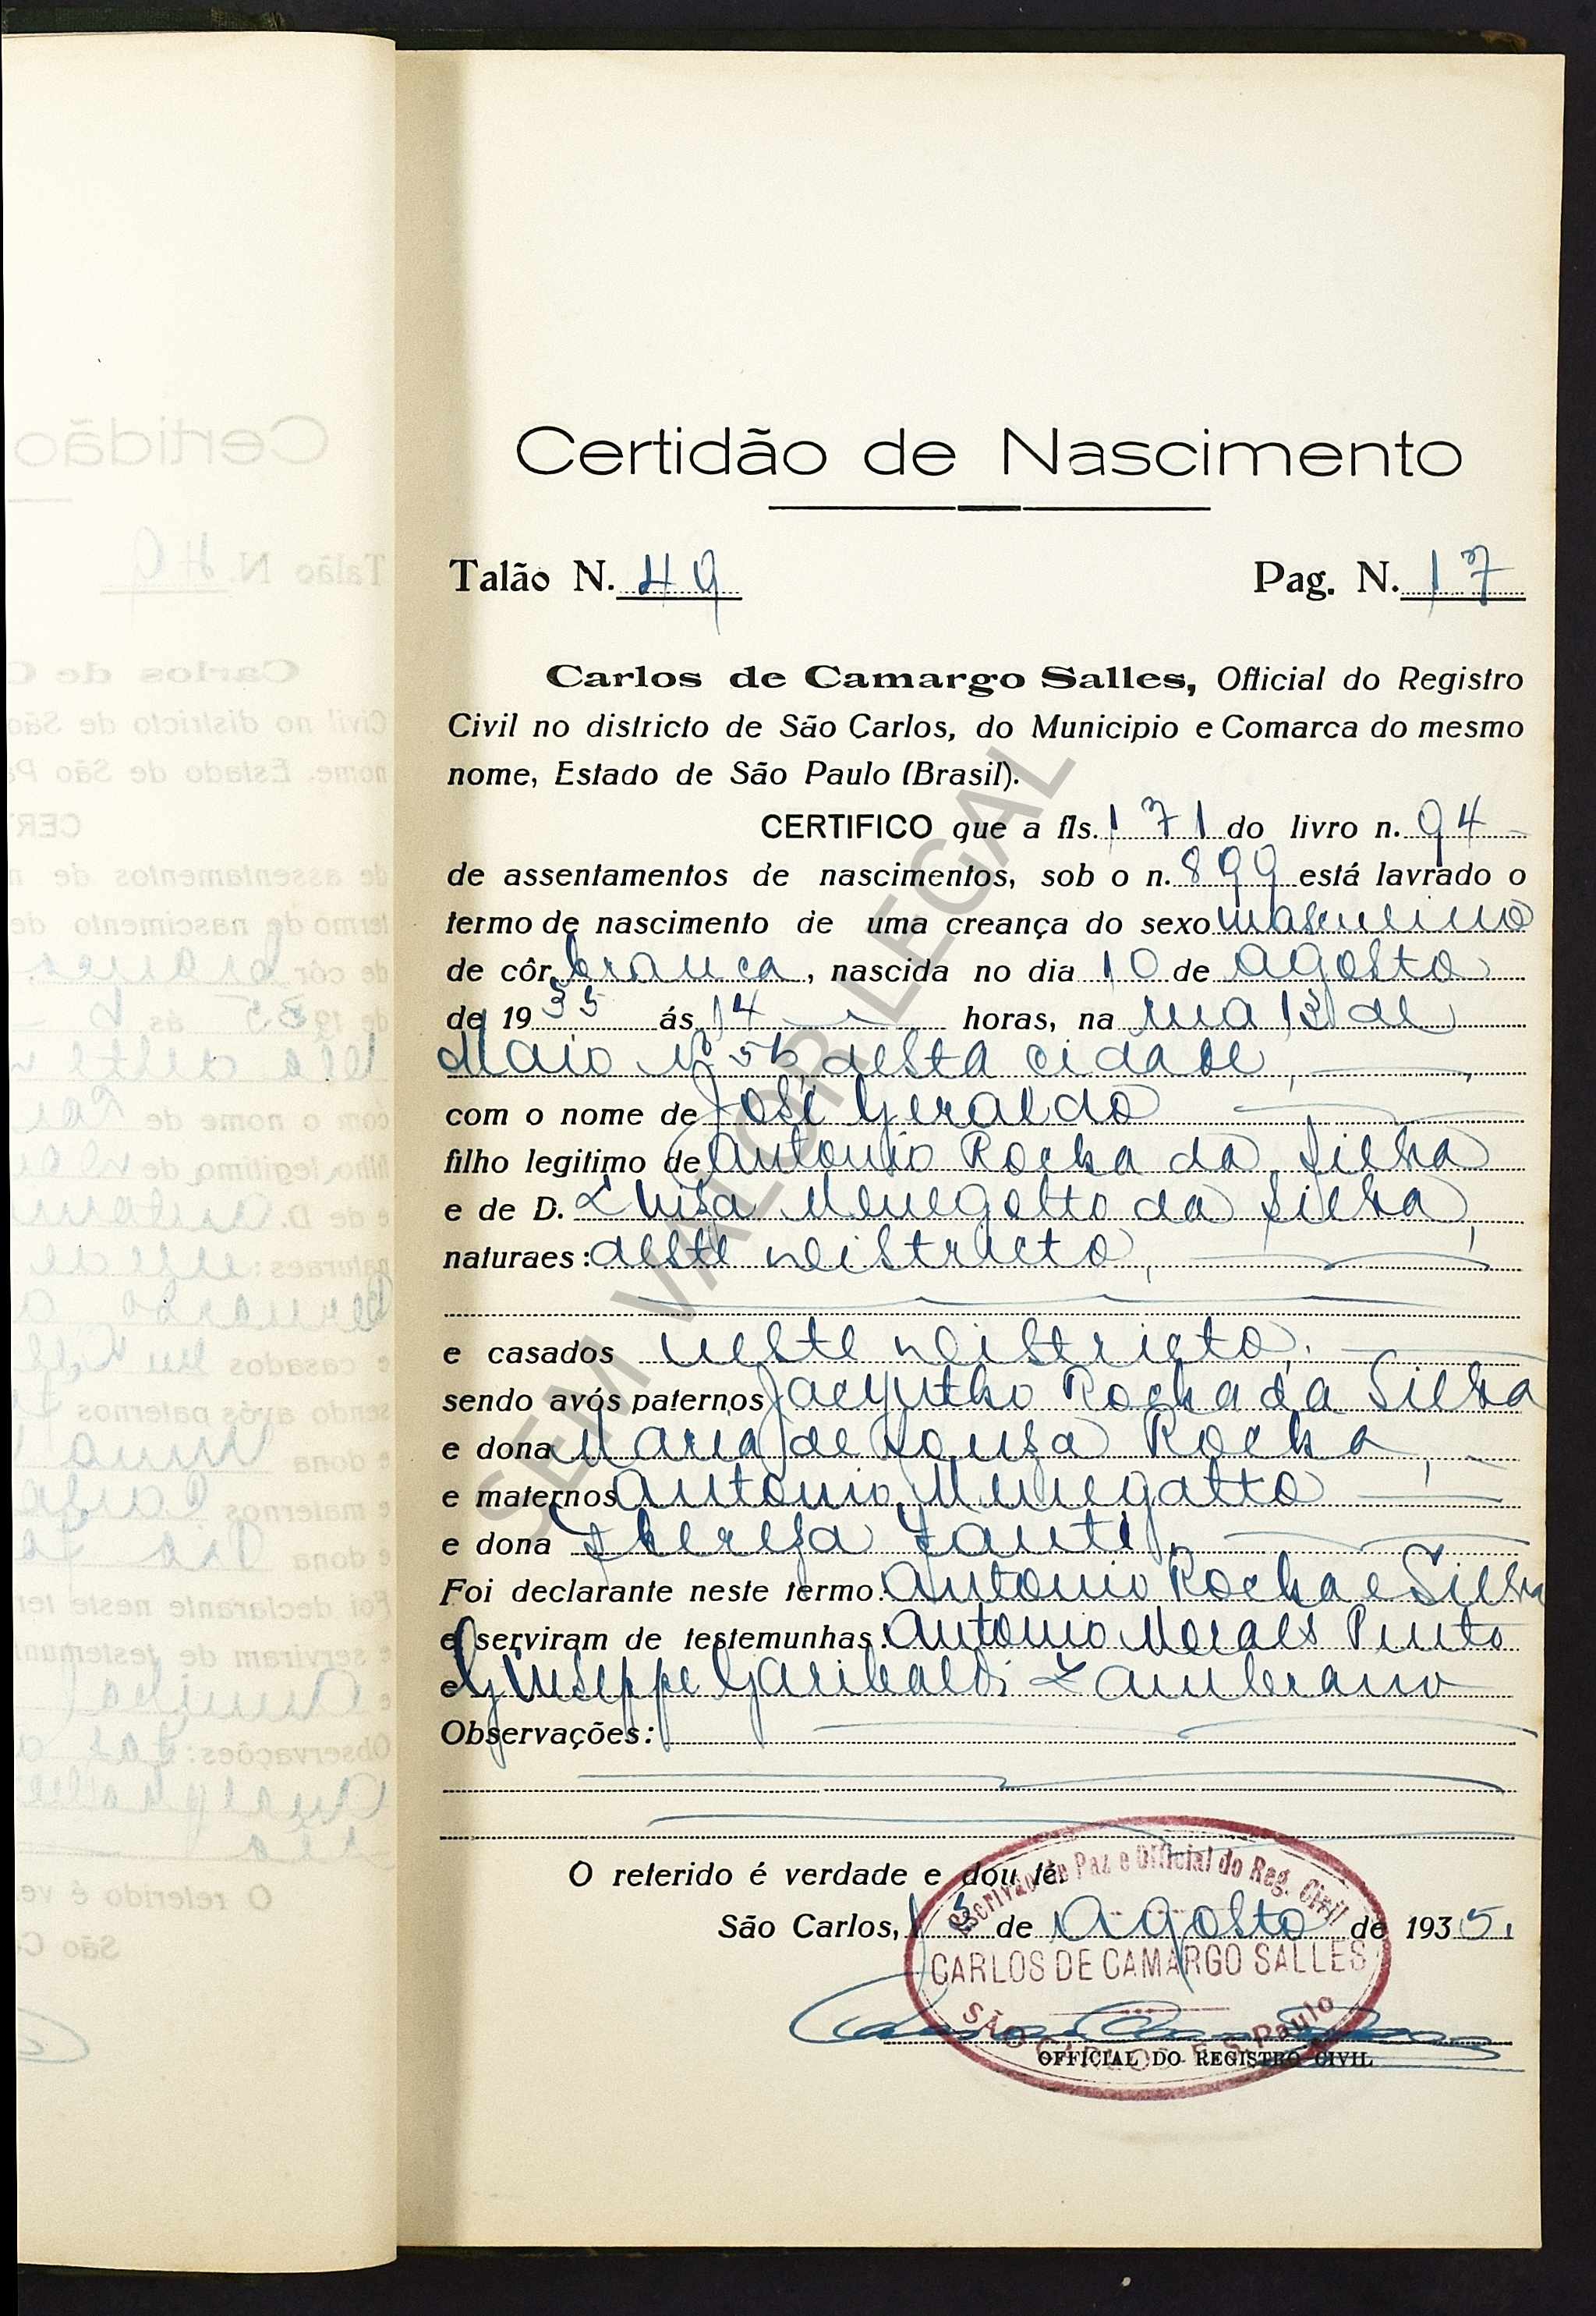 Certidão de Nascimento
Talão N. 49 Pag. N. 17
Carlos de Camargo Salles, Official do Registro
Civil no districto de São Carlos, do Municipio e Comarca do mesmo
nome, Estado de São Paulo (Brasil).
CERTIFICO que a fls. 171 do livro n. 94
de assentamentos de nascimentos, sob o n. 899 está lavrado o
termo de nascimento de uma creança do sexo masculino
de côr branca, nascida no dia 10 de Agosto
de 1935 ás 14 horas, na rua 13 de
Maio Nº 56 desta cidade,
com o nome de José Geraldo
filho legitimo de Antonio Rocha da Silva
e de D. Luisa Menegatto da Silva,
naturaes: deste districto,
e casados neste districto,
sendo avós paternos Jacyntho Rocha da Silva
e dona Maria de Souza Rocha,
e maternos Antonio Menegatto
e dona Thereza Zanti.
Foi declarante neste termo: Antonio Rocha e Silva
e serviram de testemunhas: Antonio Moraes Pinto
e Giuseppe Garibaldi Zambrano
Observações:
O referido é verdade e dou fé.
São Carlos, 13 de Agosto de 1935.
Escrivão de Paz e Official do Reg. Civil
CARLOS DE CAMARGO SALLES
SÃO CARLOS - E. S. Paulo
OFFICIAL DO REGISTRO CIVIL
SEM VALOR LEGAL